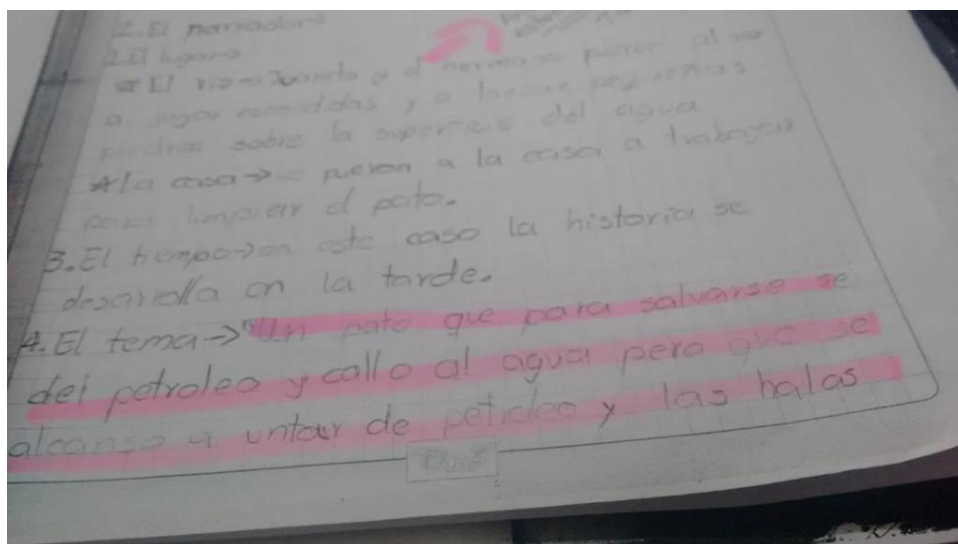 2. El narrador→
2. El lugar→
* El rio→ Juanito y el hermano fueron al rio
a jugar escondidas y a lanzar pequeñas
piedras sobre la superficie del agua
*La casa→ fueron a la casa a trabajar
para limpiar el pato.
3. El tiempo→ en este caso la historia se
desarrolla en la tarde.
4. El tema→ "Un pato que para salvarse se
del petroleo y callo al agua pero que se
alcanso a untar de petroleo y las halas